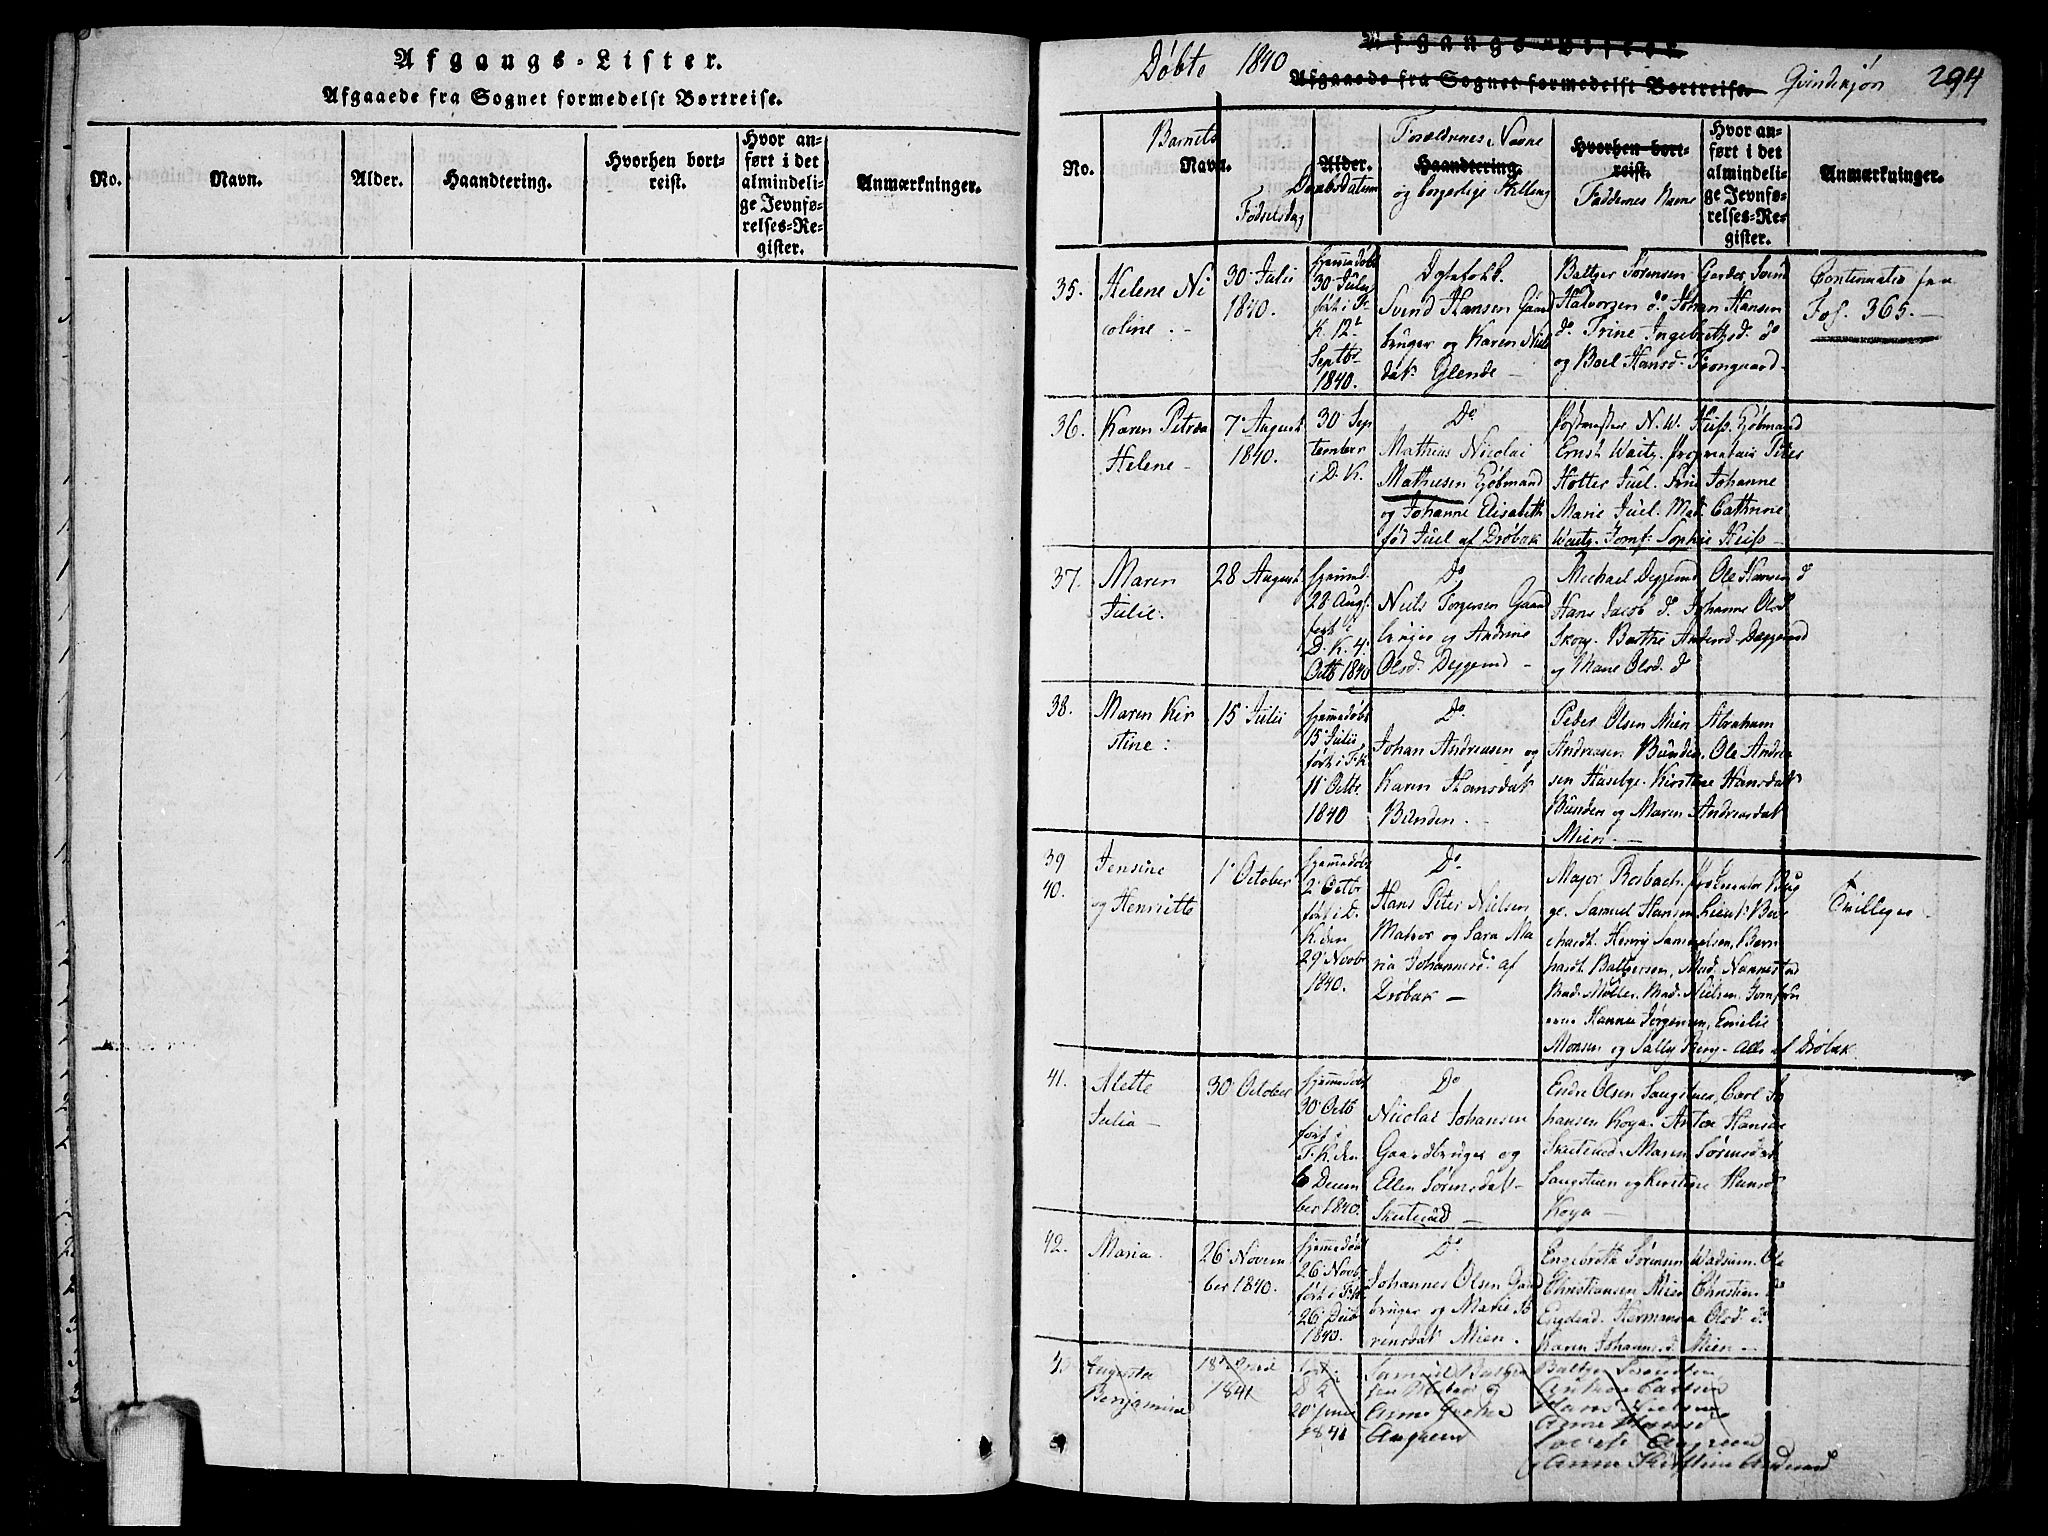 Afgangs-Lister.
Afgaaede fra Sognet formedelst Bortreise.
No.
Navn.
Alder.
Haandtering.
Hvorhen bort-
reist.
Hvor an-
ført i det
almindeli-
ge Jevnfø-
relses-Re-
gister.
Anmærkninger.
Afgangs-Lister.
Døbte 1840
Afgaaede fra Sognet formedelst Bortreise.
Qvindekjøn
294
No.
Barnets
Navn.
Fødselsdag
Alder.
Daabsdatum
Forældrenes Navne
Haandtering.
og borgerlige Stilling
Hvorhen bort-
reist.
Faddernes Navne
Hvor an-
ført i det
almindeli-
ge Jevnfø-
relses-Re-
gister.
Anmærkninger.
35.
Helene Ni
coline
30 Julii
1840.
hjemmedøbt
30 Julii
ført i F.
K. 12t
Septbr
1840.
Svend Hansen Gaard
bruger og Karen Niels
dat. Glende
Baltzer Sørensen Garder Svend
Halvorsen do Johan Hansen
do Trine Ingebrethsd. do
og Boel Hansd. Trongaard
Continuatio fra
Fol. 365.
36.
Karen Petrea
Helene
7 August
1840.
30 Sep
tember
i D. K.
Do
Mathias Nicolai
Mathiesen Kjøbmand
og Johanne Elisabeth
fød Juel af Drøbak
Postmester N. W. Huss. Kjøbmand
Ernst Waitz. Peter
Holter Juel. Johanne
Marie Juel. Mad. Cathrine
Waitz. Jomf. Sophie Huss
37.
Maren
Julie.
28 August
hjemmed.
28 Aug.
D. K. 4
Octb 1840
Do
Niels Torgersen Gaard
bruger og Andrine
Olsd. Deggerud
Michael Deggerud Ole Hansen d
Hans Jacob d. Johanne Olsd
Skog. Berthe Andersd. Deggerud
og Marie Olsd. d
38.
Maren Kir
stine
15 Julii
hjemmedøbt
15 Julii
ført i F. K.
11 Octb
1840
Do
Johan Andreasen og
Karen Hansdat
Bunden.
Peder Olsen Mien Abraham
Andreasen Bunden. Ole Andrea
sen Husebye. Kirstine Hansdat
Bunden og Maren Andreasdat
Mien
39
40.
Jensine
og Henriette
1 October
hjemmedøbt
2 Octbr
ført i D.
K. den
29 Novbr
1840.
Do
Hans Peter Nielsen
Matros og Sara Ma
ria Johannesd. af
Drøbak
Major Rosbach, Procurator Bug
ge. Samuel Hansen Lieut. Bor
chardt. Henry Samuelsen, Bern
hardt Baltzersen, Mad. Nannestad
Mad. Møller. Mad. Nielsen. Jomfru
erne Hanna Jørgensen, Emilie
Monsen og Sally Berg. alle af Drøbak.
Tvillinger
41.
Alette
Julia
30 October
hjemmedøbt
30 Octb
ført i
F. K. den
6 Decem
ber 1840.
Do
Nicolai Johansen
Gaardbruger og
Elen Sørensdat
Skuterud
Endre Olsen Sangstuen, Carl Jo
hansen Koya. Anton Hansen
Skuterud. Maren Sørensdat
Sangstuen og Kirstine Hansd
Koya
42.
Maria.
26 Novem
ber 1840.
hjemmedøbt
26 Novb
ført i F. K.
26 Decb
1840.
Do
Johannes Olsen Gaard
bruger og Marie Sø
rensdat Mien.
Engebreth Sørensen Wadsum. Ole
Christiansen Mien Christian do
Hermansen Olsd. do
Karen Johannesd. Mien
Augusta
Benjamine
1841
D K
1841
Samuel
Anne
Baltzer Sørensen
Anton Carlsen
Hans Nielsen
Anne
Anne Kirstine